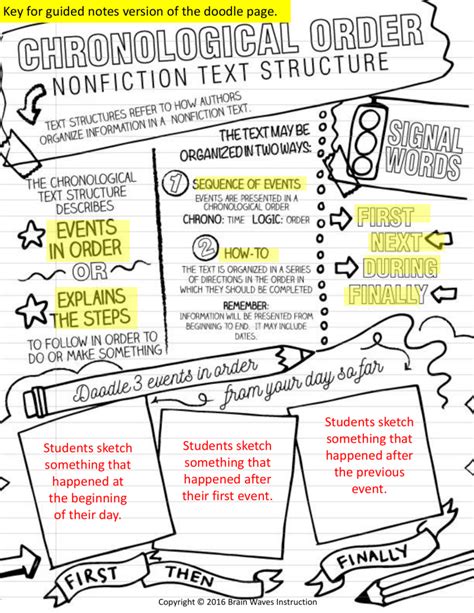 Key for guided notes version of the doodle page.
CHRONOLOGICAL ORDER
NONFICTION TEXT STRUCTURE
TEXT STRUCTURES REFER TO HOW AUTHORS
ORGANIZE INFORMATION IN A NONFICTION TEXT.
THE CHRONOLOGICAL
TEXT STRUCTURE
DESCRIBES
EVENTS
IN ORDER
OR
EXPLAINS
THE STEPS
TO FOLLOW IN ORDER TO
DO OR MAKE SOMETHING
THE TEXT MAY BE
ORGANIZED IN TWO WAYS:
1 SEQUENCE OF EVENTS
EVENTS ARE PRESENTED IN A
CHRONOLOGICAL ORDER
CHRONO: TIME LOGIC: ORDER
2 HOW-TO
THE TEXT IS ORGANIZED IN A SERIES
OF DIRECTIONS IN THE ORDER IN
WHICH THEY SHOULD BE COMPLETED
REMEMBER:
INFORMATION WILL BE PRESENTED FROM
BEGINNING TO END. IT MAY INCLUDE
DATES.
SIGNAL
WORDS
FIRST
NEXT
DURING
FINALLY
Doodle 3 events in order
from your day so far
Students sketch
something that
happened at
the beginning
of their day.
Students sketch
something that
happened after
their first event.
Students sketch
something that
happened after
the previous
event.
FIRST
THEN
FINALLY
Copyright © 2016 Brain Waves Instruction